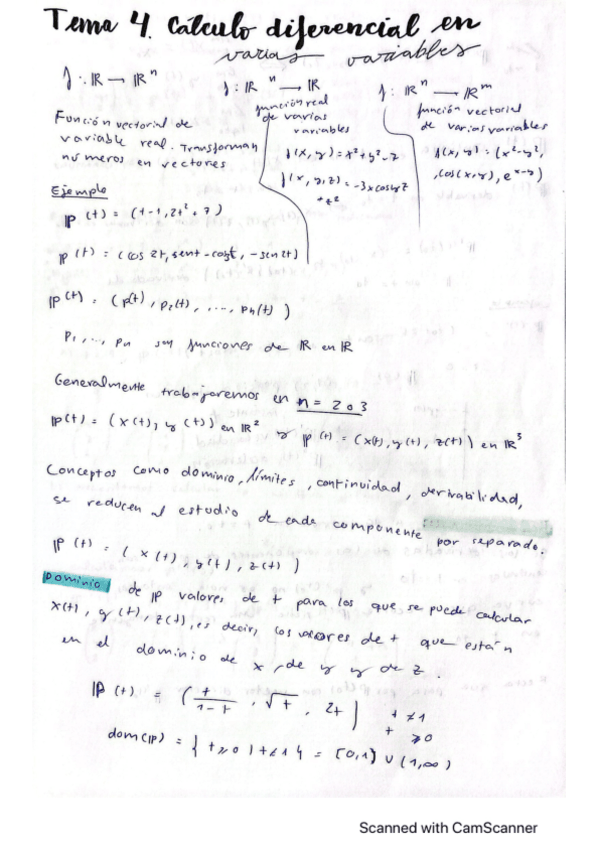 Tema 4. Calculo diferencial en
varias variables
f: ℝ → ℝⁿ
Función vectorial de
variable real. Transforman
números en vectores
f: ℝⁿ → ℝ
función real
de varias
variables
f(x,y) = x²+y²-7
f(x,y,z) = -3x cosyz
+z²
f: ℝⁿ → ℝᵐ
función vectorial
de varias variables
f(x,y) = (x²-y²,
,cos(x,y), e^(x-y))
Ejemplo
ℙ(t) = (t-1, 2t²+7)
ℙ(t) = (cos 2t, sent - cost, -sen 2t)
ℙ(t) = (p(t), p₂(t), ..., pₙ(t))
P₁, ..., Pn son funciones de ℝ en ℝ
Generalmente trabajaremos en n = 2 o 3
ℙ(t) = (x(t), y(t)) en ℝ² y ℙ(t) = (x(t), y(t), z(t)) en ℝ³
Conceptos como dominio, límites, continuidad, derivabilidad,
se reducen al estudio de cada componente por separado.
ℙ(t) = (x(t), y(t), z(t))
Dominio de ℙ valores de t para los que se puede calcular
x(t), y(t), z(t), es decir, los valores de t que están
en el dominio de x, de y y de z.
ℙ(t) = (t/(1-t), √t, 2t) t ≠ 1
t ≥ 0
dom(ℙ) = {t ≥ 0 | t ≠ 1} = [0,1) ∪ (1,∞)
Scanned with CamScanner